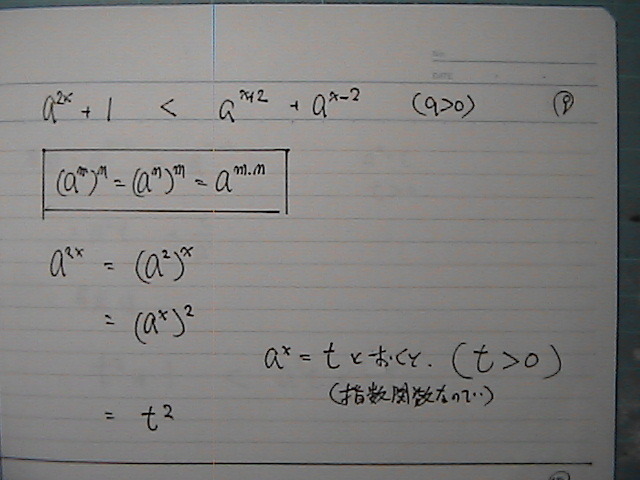 No.
DATE
a^{2x} + 1 < a^{x+2} + a^{x-2} (a>0) ⑨
(a^m)^n = (a^n)^m = a^{m·n}
a^{2x} = (a^2)^x
= (a^x)^2
a^x = t とおくと. (t>0)
(指数関数なので‥)
= t^2